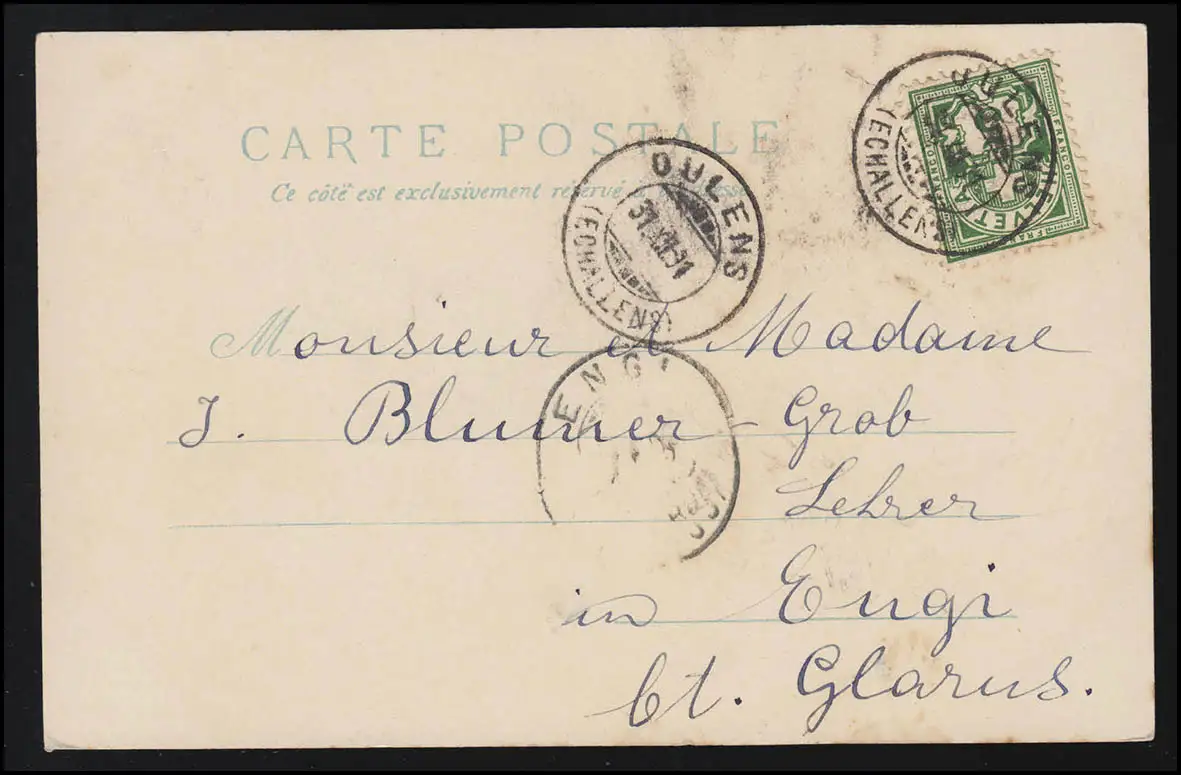 CARTE POSTALE
Ce côté est exclusivement réservé
OULENS
(ECHALLENS)
FRANCO
HELVETIA
OULENS
31.XII.01
(ECHALLENS)
ENGI
Monsieur et Madame
J. Blumer-Grob
Lehrer
in Engi
Ct. Glarus.